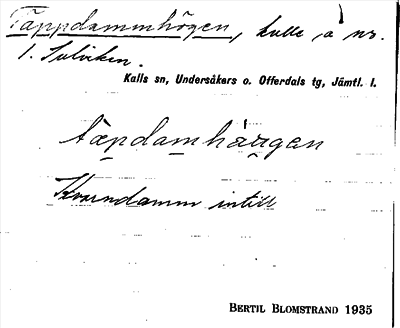 Täppdammhögen, kulle, å nr.
1. Sulviken.
Kalls sn, Undersåkers o. Offerdals tg, Jämtl. l.
tæpdamhäugen
Kvarndamm intill
BERTIL BLOMSTRAND 1935